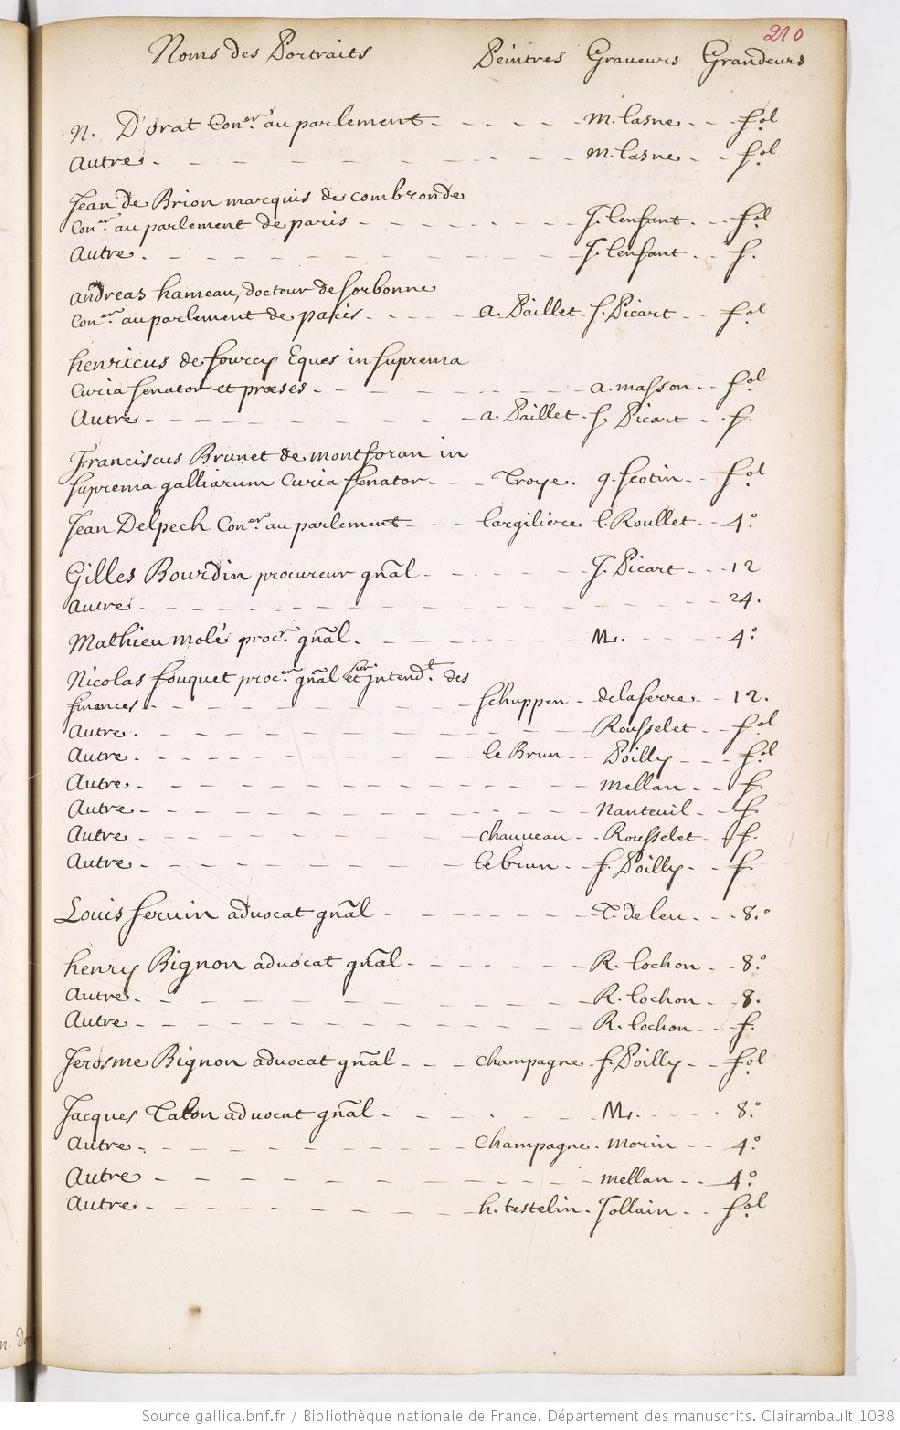 210
Noms des Portraits Peintres Graveurs Grandeurs
N. D'orat Con.er au parlement - - - - - M. lasne - - fol
Autre - - - - - M. lasne - - fol
Jean de Brion marquis de combronde
Con.er au parlement de paris - - - - - J. lenfant - - fol
Autre - - - - - J. lenfant - - f.
Andreas hameau, docteur de sorbonne
Con.er au parlement de paris - - - - a. Paillet f. Picart - - fol
henricus de fourcy Eques in suprema
Curia senator et præses - - - - - a. masson - - fol
Autre - - - - - a. Paillet f. Picart - f.
Franciscus Brunet de montforan in
suprema galliarum Curia senator - - - Troye. g. scotin - fol
Jean Delpech Con.er au parlement - - largiliere C. Roullet - - 4.o
Gilles Bourdin procureur gnãl - - - - J. Picart - - - 12
Autre - - - - - 24.
Mathieu molé proc.r gnãl - - - - - M. - - - - 4.o
Nicolas fouquet proc.r gnãl sur et Jntend.t des
finances - - - - - schuppen - delaserre - - 12.
Autre - - - - - Rousselet - - fol
Autre - - - - - le Brun - - Poilly - - - fol
Autre - - - - - mellan - - f.
Autre - - - - - Nanteuil - - f.
Autre - - - - - chauveau - - Rousselet - f.
Autre - - - - - le brun - - f. Poilly - - f.
Louis servin advocat gnãl - - - - - T. de leu - - - 8.o
henry Bignon advocat gnãl - - - - - R. lochon - - 8.o
Autre - - - - - R. lochon - - 8.
Autre - - - - - R. lochon - - f.
Jerosme Bignon advocat gnãl - - - champagne f. Poilly - - fol
Jacques Talon advocat gnãl - - - - - M. - - - - 8.o
Autre - - - - - Champagne - Morin - - 4.o
Autre - - - - - mellan - - 4.o
Autre - - - - - h. testelin - Jollain - - fol
Source gallica.bnf.fr / Bibliothèque nationale de France. Département des manuscrits. Clairambault 1038